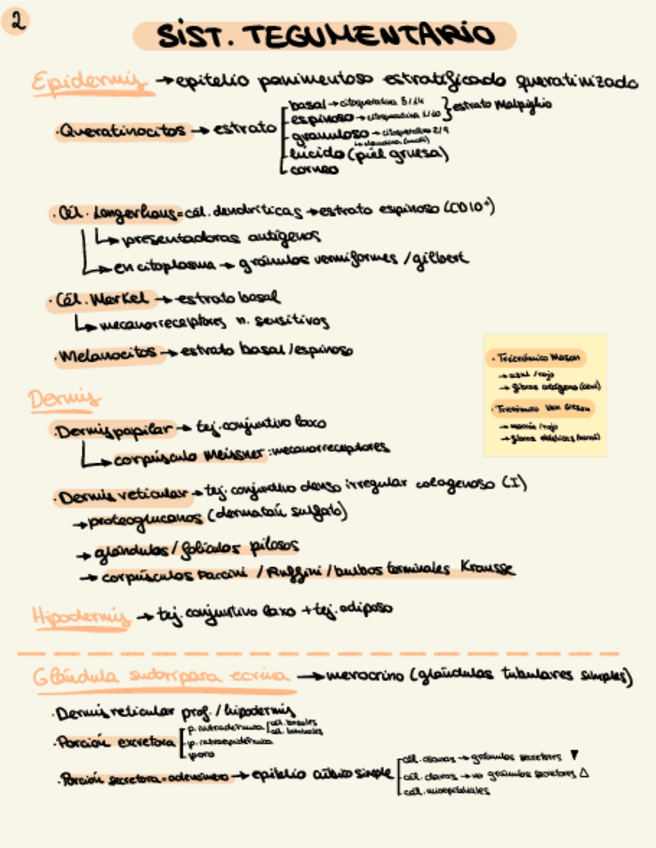 2
SIST. TEGUMENTARIO
Epidermis → epitelio pavimentoso estratificado queratinizado
· Queratinocitos → estrato
basal → citoqueratina 5/14
espinoso → citoqueratina 1/10
} estrato Malpighio
granuloso → citoqueratina 2/9
lúcido (piel gruesa)
corneo
· Cél. Langerhans = cél. dendríticas → estrato espinoso (CD10⁺)
→ presentadoras antígenos
→ en citoplasma → gránulos vermiformes / gilbert
· Cél. Merkel → estrato basal
→ mecanorreceptores n. sensitivos
· Melanocitos → estrato basal/espinoso
· Tricrómico Mason
→ azul/rojo
→ fibras colágeno (azul)
· Tricrómico Van Gieson
→ marrón/rojo
→ fibras elásticas (marrón)
Dermis
· Dermis papilar → tej. conjuntivo laxo
→ corpúsculo Meissner: mecanorreceptores
· Dermis reticular → tej. conjuntivo denso irregular colagenoso (I)
→ proteoglucanos (dermatán sulfato)
→ glándulas / folículos pilosos
→ corpúsculos Paccini / Ruffini / bulbos terminales Krausse
Hipodermis → tej. conjuntivo laxo + tej. adiposo
Glándula sudorípara ecrina → merocrino (glándulas tubulares simples)
· Dermis reticular prof. / hipodermis
· Porción excretora
p. intradérmica
cél. basales
cél. luminales
p. intraepidérmica
poro
· Porción secretora = adenómero → epitelio cúbico simple
cél. oscuras → gránulos secretores ▼
cél. claras → no gránulos secretores △
cél. mioepiteliales